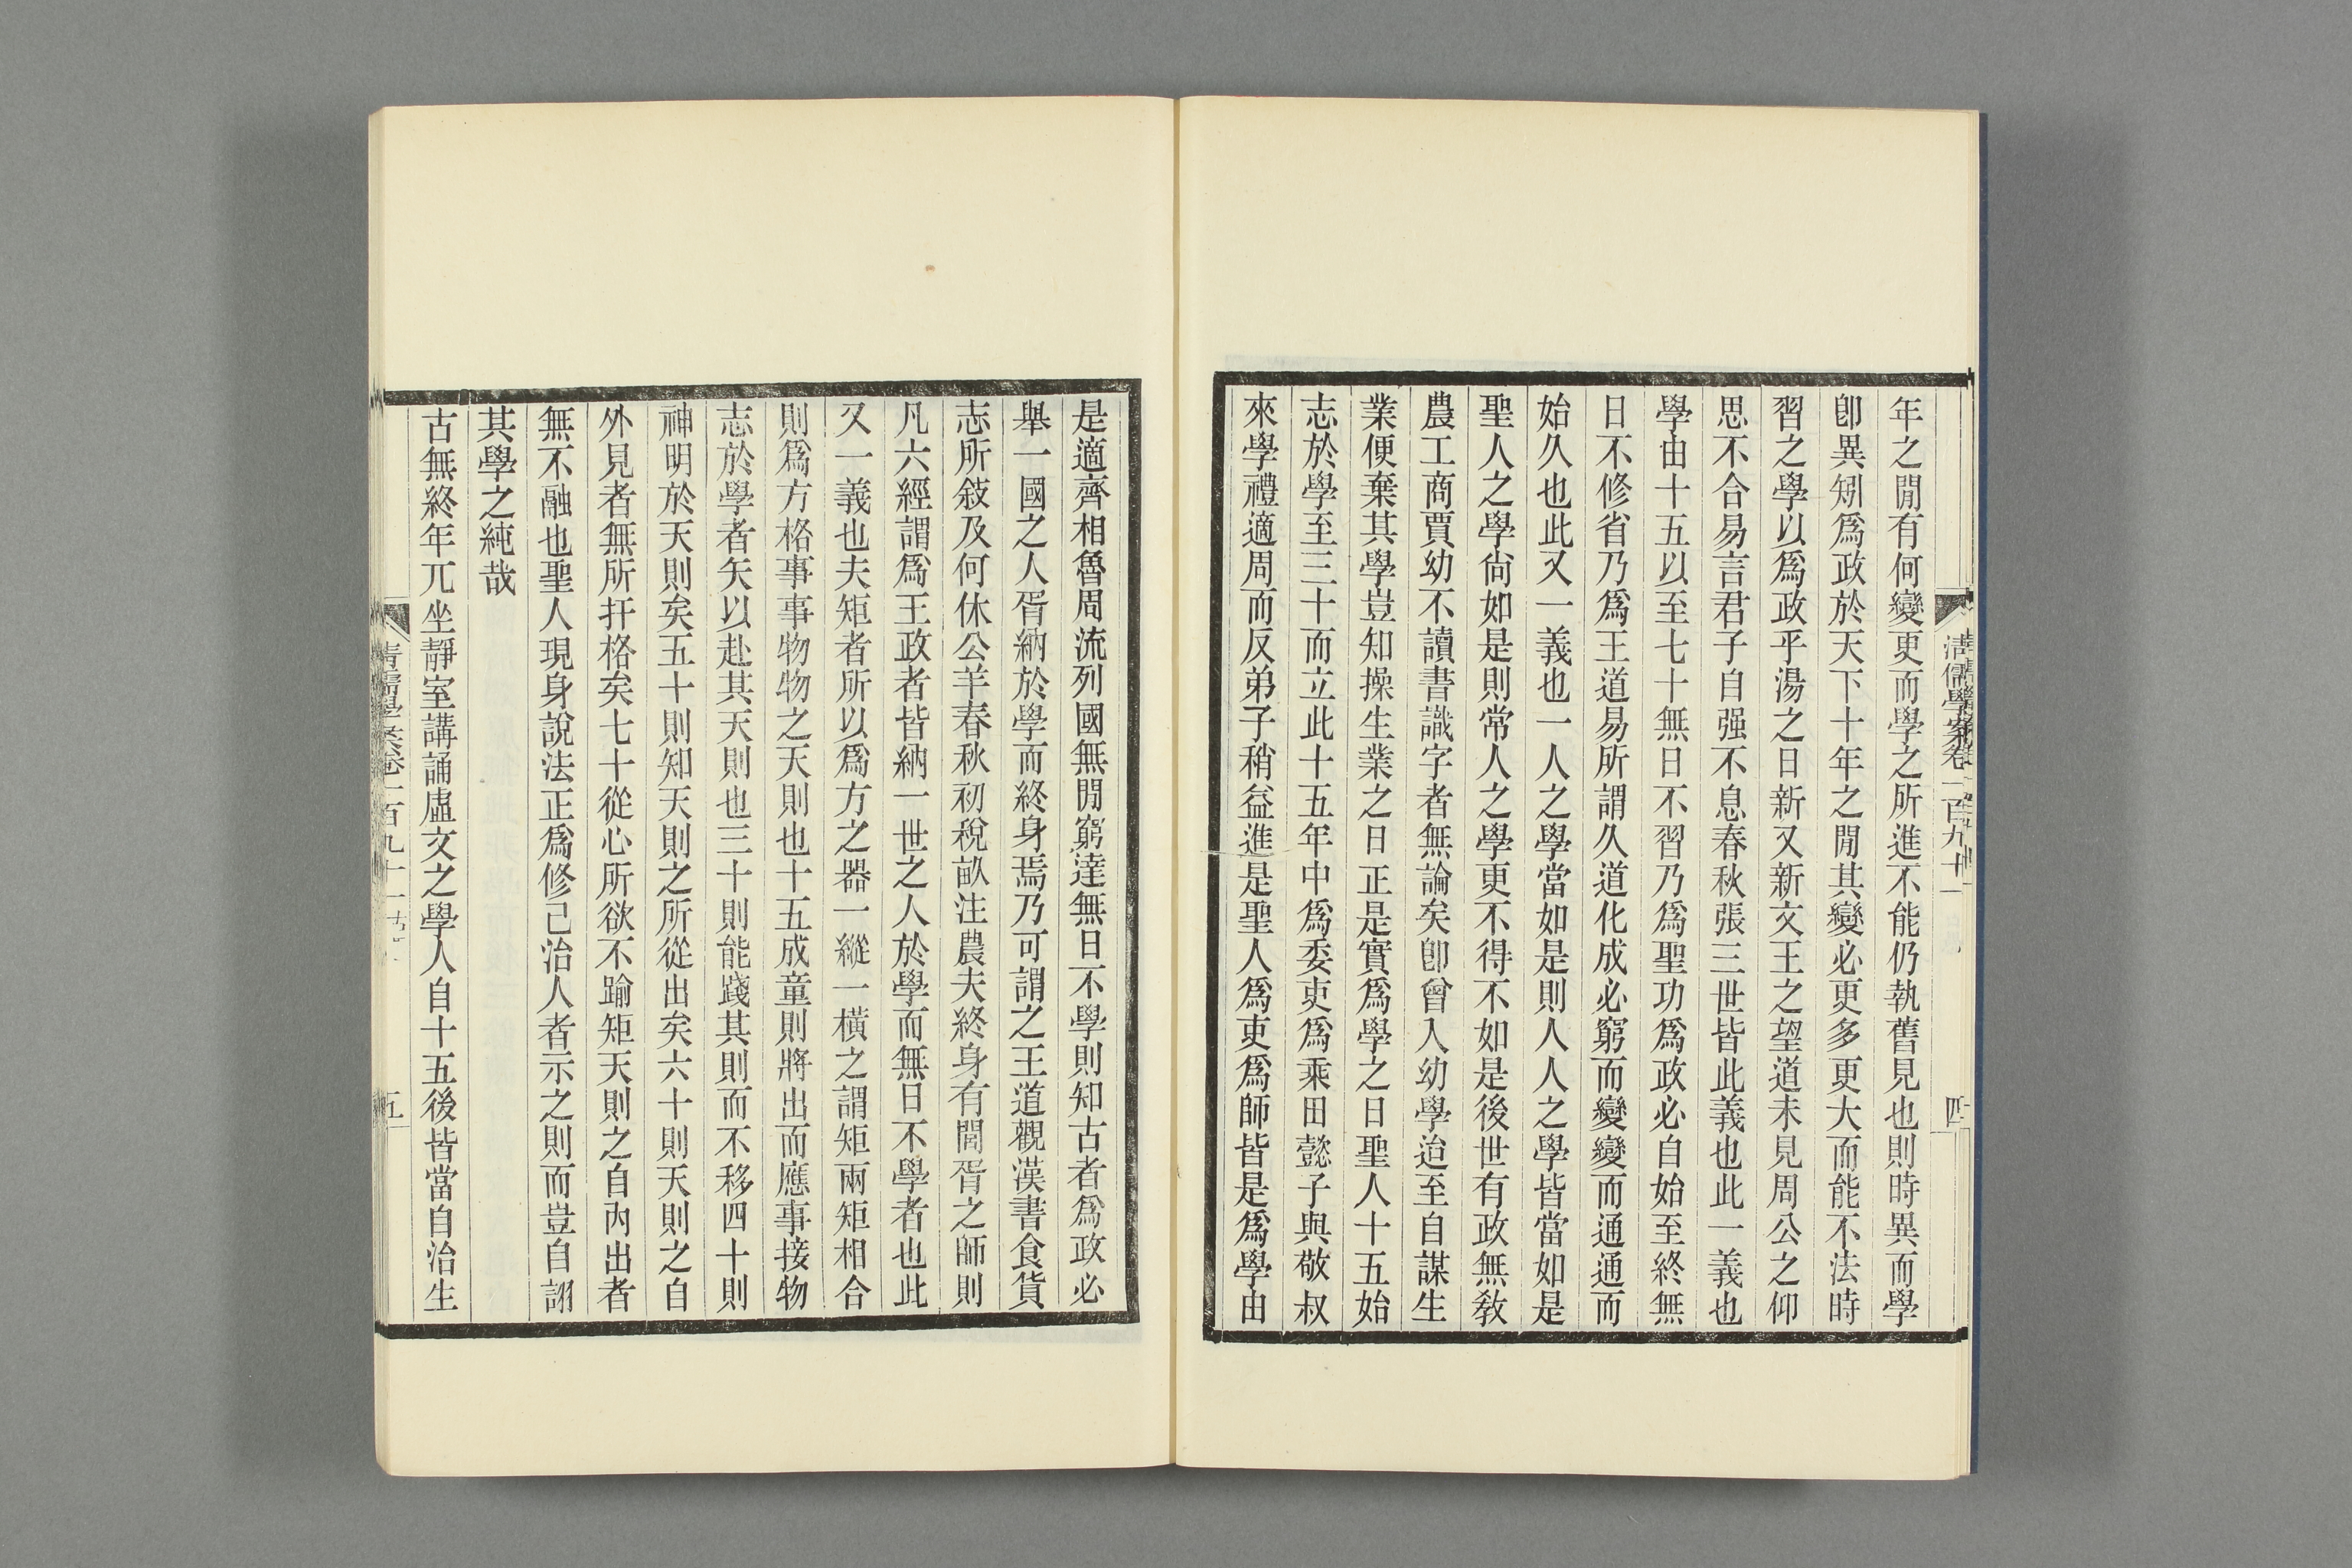 清儒學案卷一百九十一
四
年之閒有何變更而學之所進不能仍執舊見也則時異而學
卽異矧爲政於天下十年之閒其變必更多更大而能不法時
習之學以爲政乎湯之日新又新文王之望道未見周公之仰
思不合易言君子自强不息春秋張三世皆此義也此一義也
學由十五以至七十無日不習乃爲聖功爲政必自始至終無
日不修省乃爲王道易所謂久道化成必窮而變變而通通而
始久也此又一義也一人之學當如是則人人之學皆當如是
聖人之學尙如是則常人之學更不得不如是後世有政無敎
農工商賈幼不讀書識字者無論矣卽曾入幼學迨至自謀生
業便棄其學豈知操生業之日正是實爲學之日聖人十五始
志於學至三十而立此十五年中爲委吏爲乘田懿子與敬叔
來學禮適周而反弟子稍益進是聖人爲吏爲師皆是爲學由
是適齊相魯周流列國無閒窮達無日不學則知古者爲政必
舉一國之人胥納於學而終身焉乃可謂之王道觀漢書食貨
志所敍及何休公羊春秋初稅畝注農夫終身有閒胥之師則
凡六經謂爲王政者皆納一世之人於學而無日不學者也此
又一義也夫矩者所以爲方之器一縱一橫之謂矩兩矩相合
則爲方格事事物物之天則也十五成童則將出而應事接物
志於學者矢以赴其天則也三十則能踐其則而不移四十則
神明於天則矣五十則知天則之所從出矣六十則天則之自
外見者無所扞格矣七十從心所欲不踰矩天則之自內出者
無不融也聖人現身說法正爲修己治人者示之則而豈自詡
其學之純哉
古無終年兀坐靜室講誦虛文之學人自十五後皆當自治生
清儒學案卷一百九十一
五